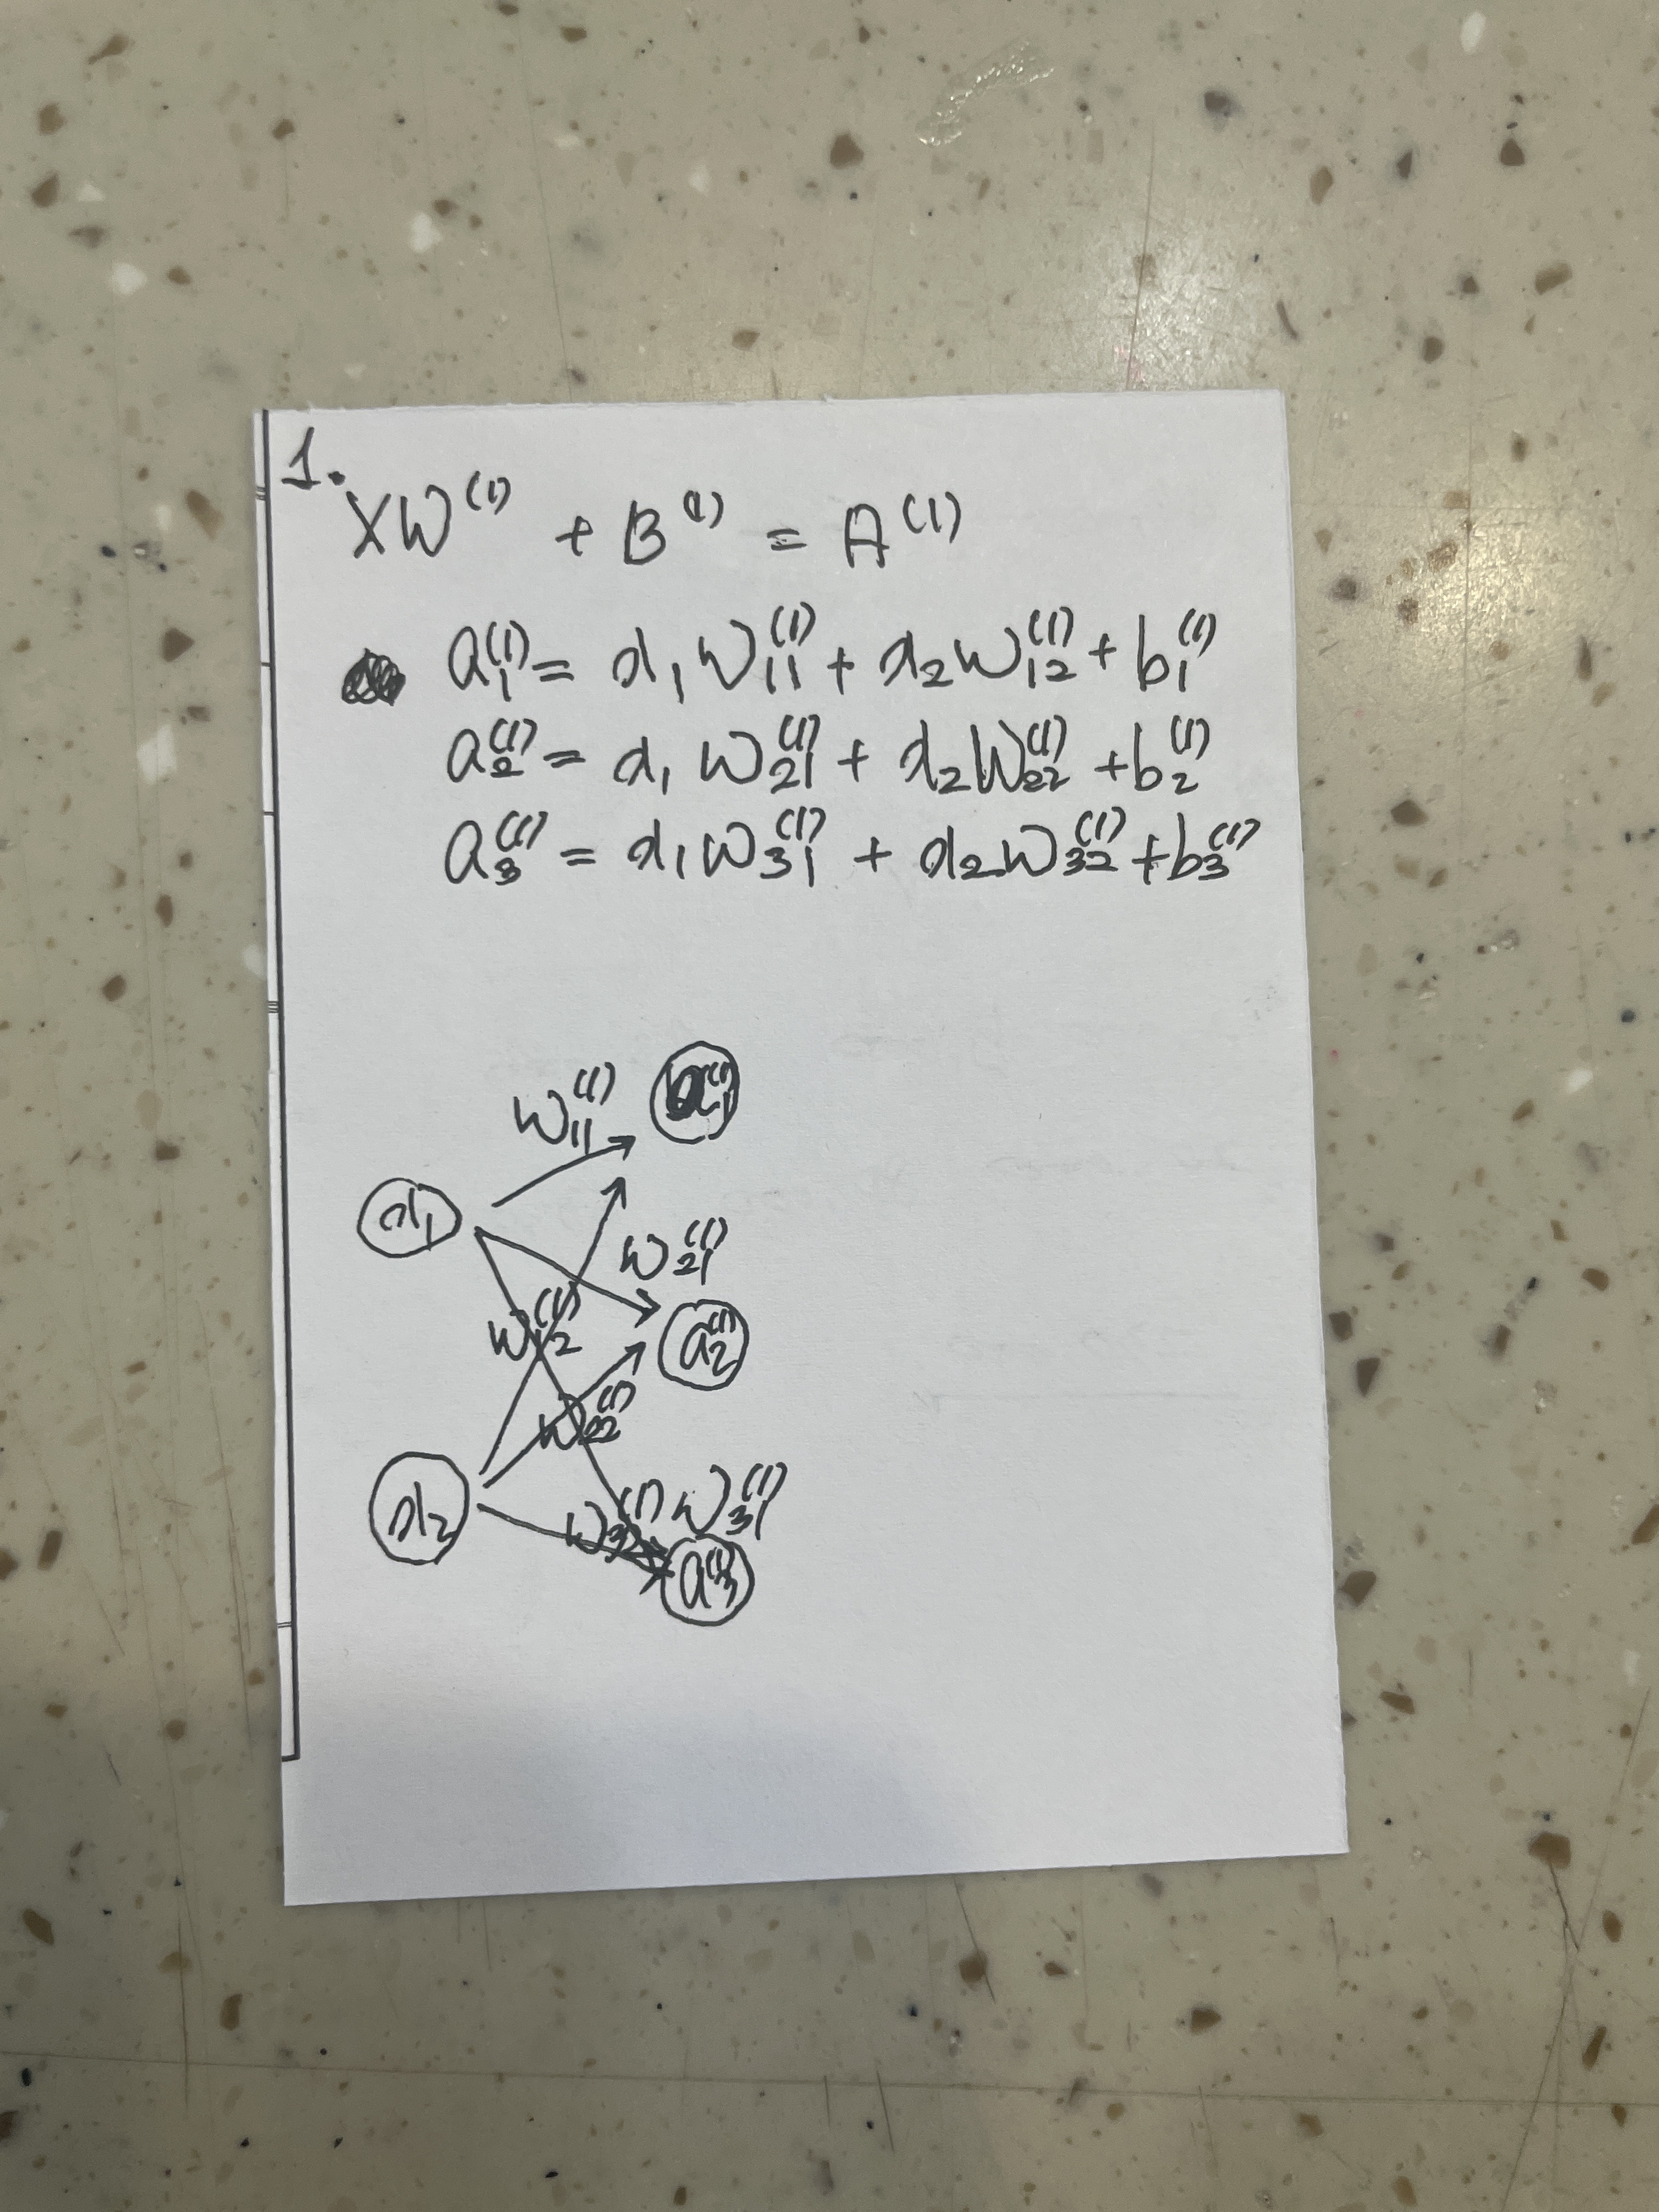 1.
XW^(1) + B^(1) = A^(1)
a_1^(1) = x_1 w_11^(1) + x_2 w_12^(1) + b_1^(1)
a_2^(1) = x_1 w_21^(1) + x_2 w_22^(1) + b_2^(1)
a_3^(1) = x_1 w_31^(1) + x_2 w_32^(1) + b_3^(1)
w_11^(1)
a_1^(1)
x_1
w_21^(1)
w_12^(1)
a_2^(1)
w_22^(1)
x_2
w_32^(1) w_31^(1)
a_3^(1)